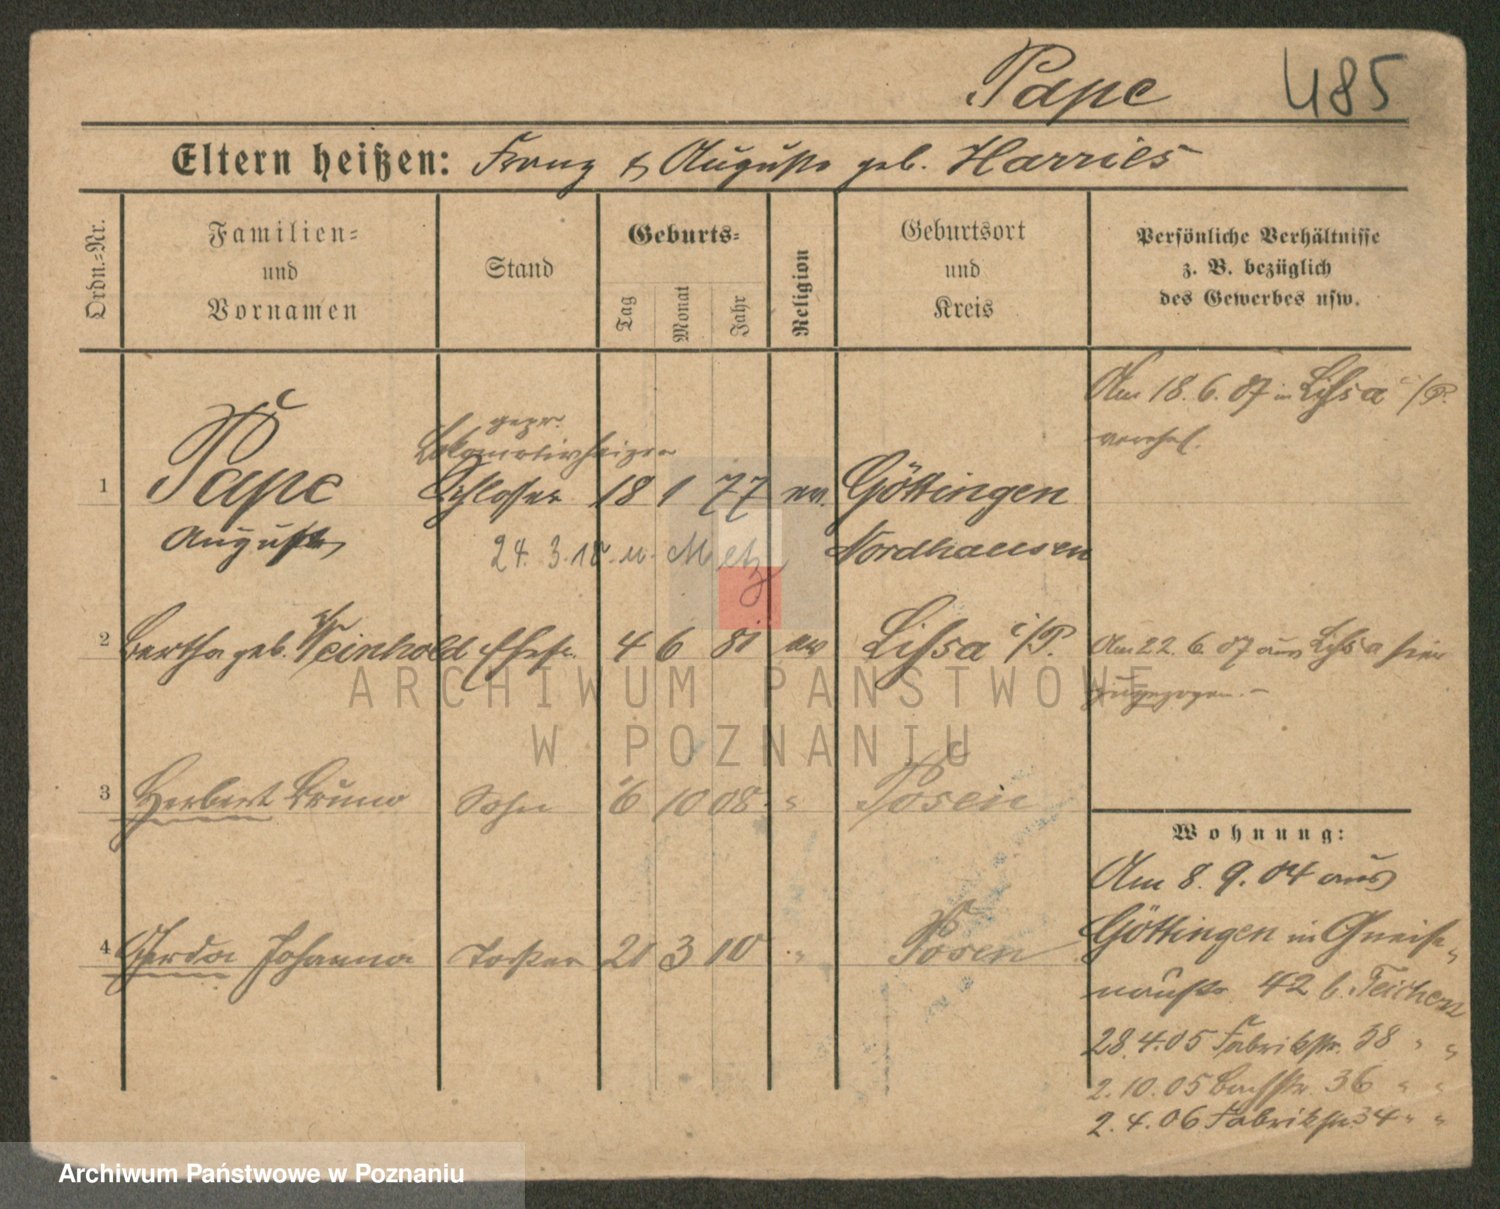 Pape 485
Eltern heißen: Franz & Auguste geb. Harries
Ordn.=Nr.
Familien=
und
Vornamen
Stand
Geburts=
Tag
Monat
Jahr
Religion
Geburtsort
und
Kreis
Persönliche Verhältnisse
z. B. bezüglich
des Gewerbes usw.
gepr.
Lokomotivheizer
1 Pape Schlosser 18 1 77 ev. Göttingen
August 24. 3. 18. n. Metz Nordhausen
Am 18. 6. 07 in Lissa i/P.
verehel.
2 Bertha geb. Weinhold Ehefr. 4 6 81 ev Lissa i/P.
Am 22. 6. 07 aus Lissa hier
zugezogen. –
3 Herbert Bruno Sohn 6 10 08 " Posen
4 Gerda Johanna Tochter 21 3 10 " Posen
Wohnung:
Am 8. 9. 04 aus
Göttingen in Gneise-
naustr. 42 b. Teichert
28. 4. 05 Fabrikstr. 38 " "
2. 10. 05 Bachstr. 36 " "
2. 4. 06 Fabrikstr. 34 " "
ARCHIWUM PAŃSTWOWE
W POZNANIU
Archiwum Państwowe w Poznaniu